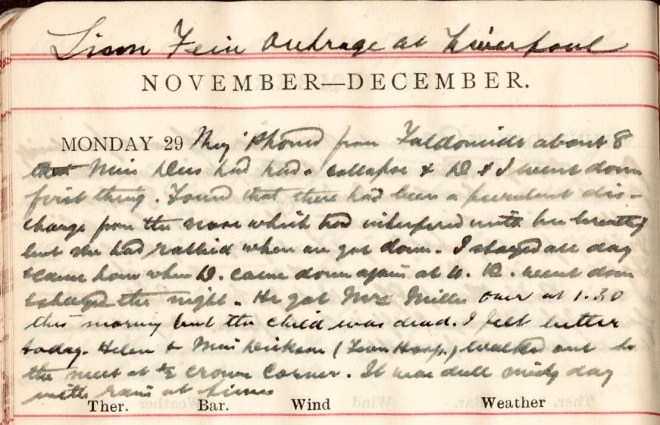 Sinn Fein Outrage at Liverpool
NOVEMBER—DECEMBER.
MONDAY 29 They phoned from about 8
that Miss had had a collapse & D & I went down
first thing. Found that there had been a purulent dis-
charge from the nose which had interfered with her breathing
but she had rallied when we got down. I stayed all day
& came home when D. came down again at 4. D. went down
& stayed the night. He got Mrs Miller over at 1.30
this morning but the child was dead. I felt better
today. Helen & Miss Dickson (Town Hosp.) walked out to
the meet at Crown Corner. It was dull misty day
with rain at times
Ther. Bar. Wind Weather